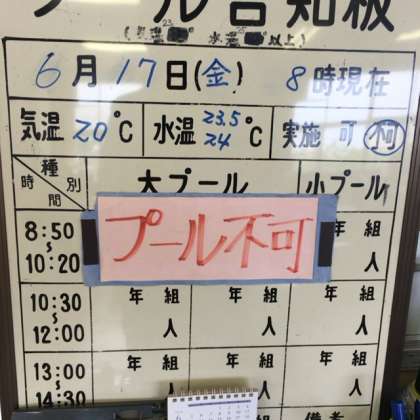 プール告知板
6月17日(金) 8時現在
気温 20℃ 水温 23.5 24℃ 実施 可 不可
種別 時間 大プール 小プール
プール不可
8:50~10:20 年 組 人
10:30~12:00 年 組 人 年 組 人 年 組 人
13:00~14:30 年 組 人 年 組 人 年 組 人
備考